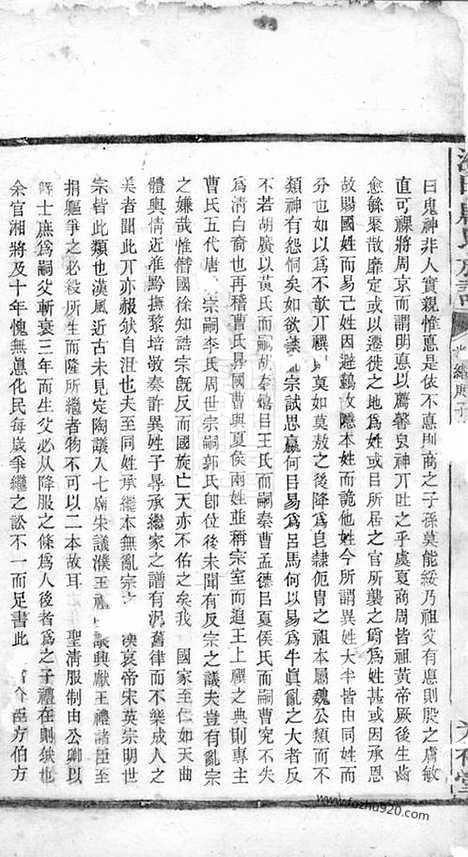 曰鬼神非人實親惟悳是依不悳則商之子孫莫能綏乃祖爻有悳則殷之膚敏
直可祼將周京而謂明悳以薦馨㒵神丌吐之乎虞夏商周皆祖黃帝厥後生齒
愈緐聚散靡定或以遷徙之地爲姓或目所居之官所襲之爵爲姓甚或因承恩
故賜國姓而易己姓因避難故隱本姓而詭他姓今所謂異姓大半皆由同姓而
分也如以爲不歆丌禩莫如莫敖之後降爲皂隷伌冑之祖本屬魏公類而不
類神有怨恫矣如欲禁亂宗試思嬴何目易爲呂馬何以易爲牛眞亂之大者反
不若胡廣以黃氏而嗣胡秦嬉目王氏而嗣秦曹孟德目夏侯氏而嗣曹宄不失
爲淸白裔也再稽曹氏昇國曹與夏侯兩姓並稱宗室而追王上禩之典則專主
曹氏五代唐 宗嗣李氏周世宗嗣郭氏卽位後未聞有反宗之議夫豈有亂宗
之嫌哉惟僭國徐知誥宗旣反而國旋亡天亦不佑之矣我 國家至仁如天曲
體輿情近准黔撫綦培敬奏許異姓子㝵承繼家之譜有泥舊律而不樂成人之
美者聞此丌亦赧然自沮也夫至同姓承繼本無亂宗之 漢哀帝宋英宗明世
宗皆此類也漢風近古未見定陶議入七廟宋議濮王禮 議興獻王禮諸臣至
捐軀爭之必殺所生而隆所繼者物不可以二本故耳 聖淸服制由公卿以
曁士庶爲嗣父斬衰三年而生父必从降服之條爲人後者爲之子禮在則然也
余官湘將及十年愧無悳化民每歲爭繼之訟不一而足書此 方伯方
繼
www.fozhu920.com